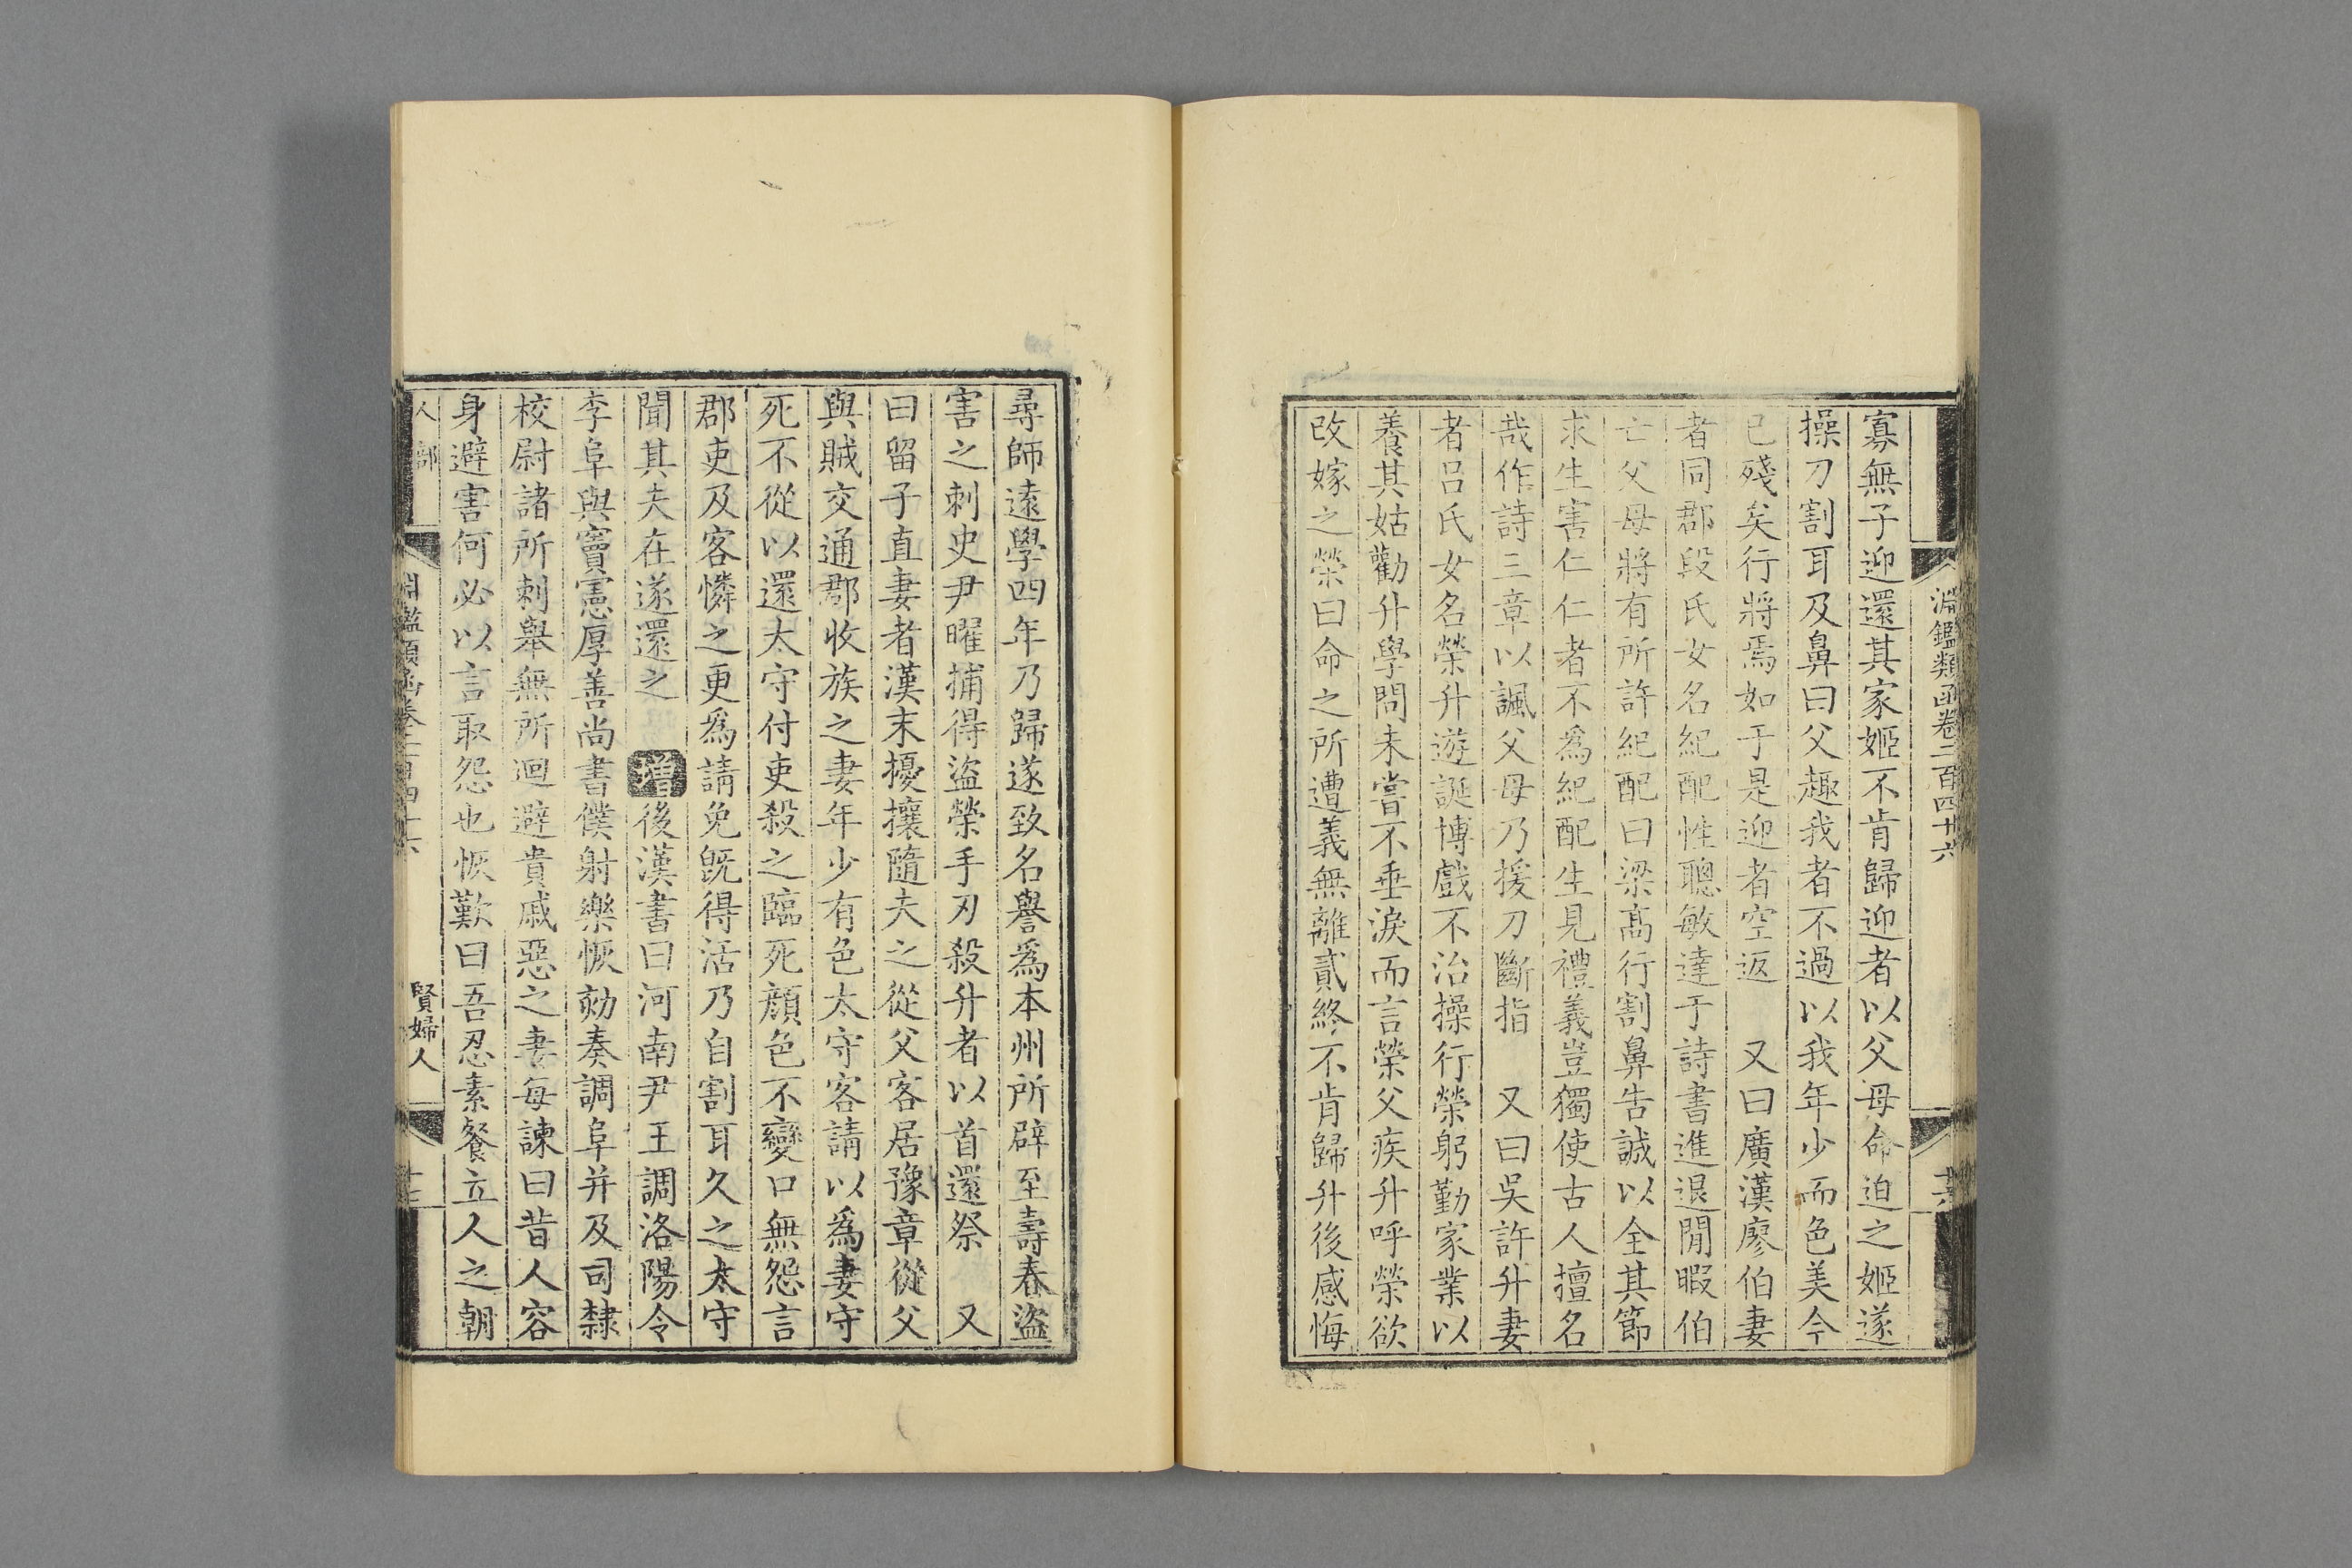 淵鑑類函卷二百四十六
十六
寡無子迎還其家姬不肯歸迎者以父母命迫之姬遂
操刀割耳及鼻曰父趣我者不過以我年少而色美今
已殘矣行將焉如于是迎者空返 又曰廣漢廖伯妻
者同郡段氏女名紀配性聰敏達于詩書進退閒暇伯
亡父母將有所許紀配曰梁高行割鼻告誠以全其節
求生害仁仁者不爲紀配生見禮義豈獨使古人擅名
哉作詩三章以諷父母乃援刀斷指 又曰吳許升妻
者呂氏女名榮升遊誕博戲不治操行榮躬勤家業以
養其姑勸升學問未嘗不垂淚而言榮父疾升呼榮欲
改嫁之榮曰命之所遭義無離貳終不肯歸升後感悔
尋師遠學四年乃歸遂致名譽爲本州所辟至壽春盜
害之刺史尹曜捕得盜榮手刃殺升者以首還祭 又
曰留子直妻者漢末擾攘隨夫之從父客居豫章從父
與賊交通郡收族之妻年少有色太守客請以爲妻守
死不從以還太守付吏殺之臨死顔色不變口無怨言
郡吏及客憐之更爲請免旣得活乃自割耳久之太守
聞其夫在遂還之 增後漢書曰河南尹王調洛陽令
李阜與竇憲厚善尚書僕射樂恢劾奏調阜并及司隸
校尉諸所刺舉無所迴避貴戚惡之妻每諫曰昔人容
身避害何必以言取怨也恢歎曰吾忍素餐立人之朝
人部
淵鑑類函卷二百四十六
賢婦人
十七